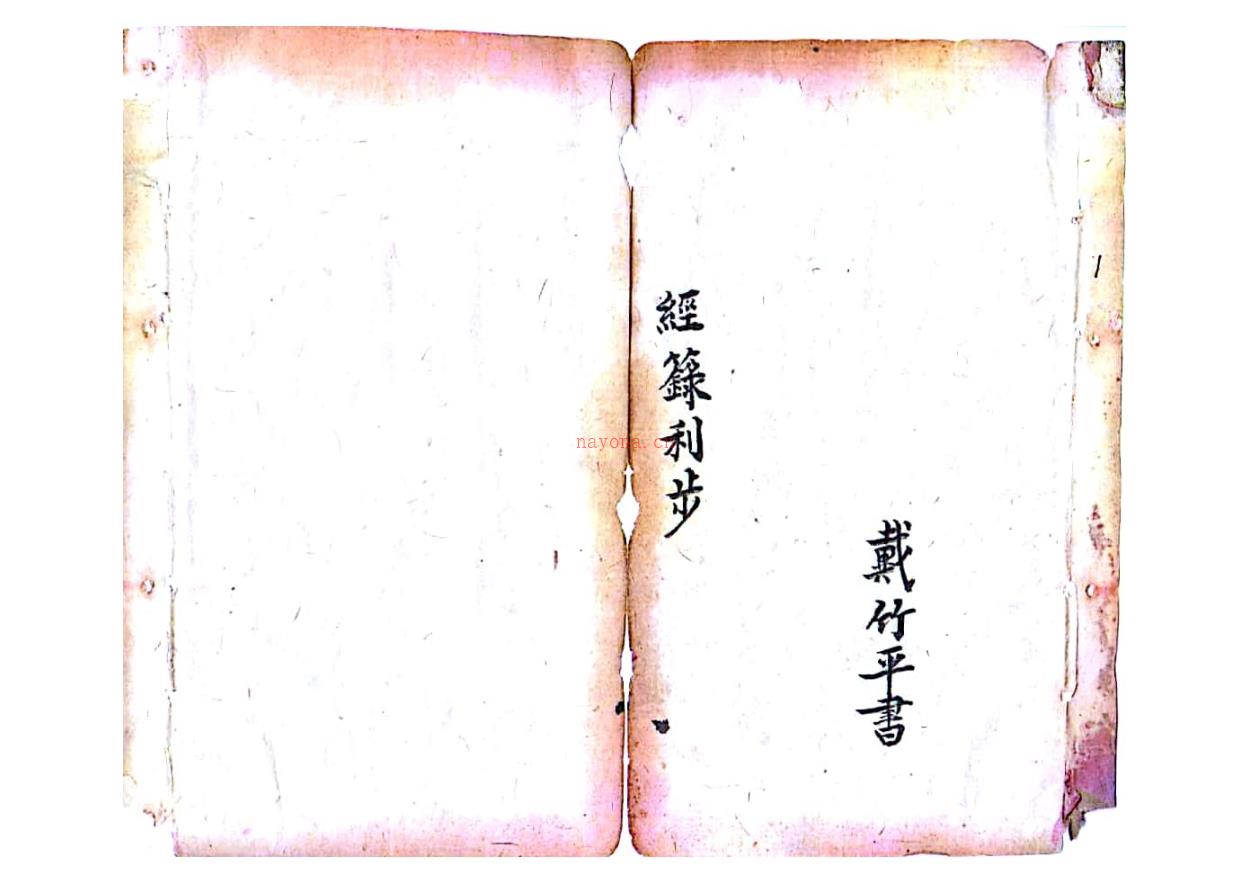 1
戴竹平書
經籙利步
nayona.cn